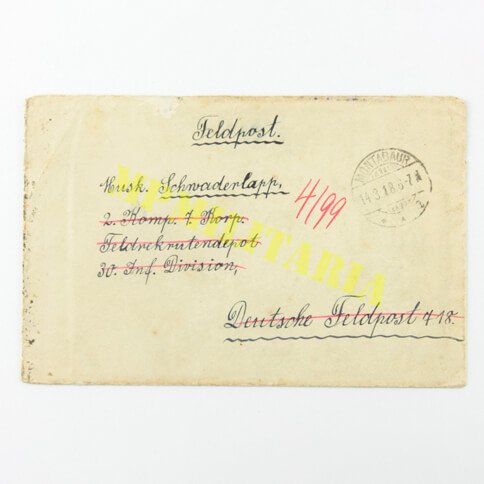 Feldpost.
MONTABAUR
14.3.18.6-7N
Musk. Schwaderlapp,
4/99
2. Komp. 7. Korp.
Feldrekrutendepot
30. Inf. Division,
Deutsche Feldpost 718.
MILITARIA